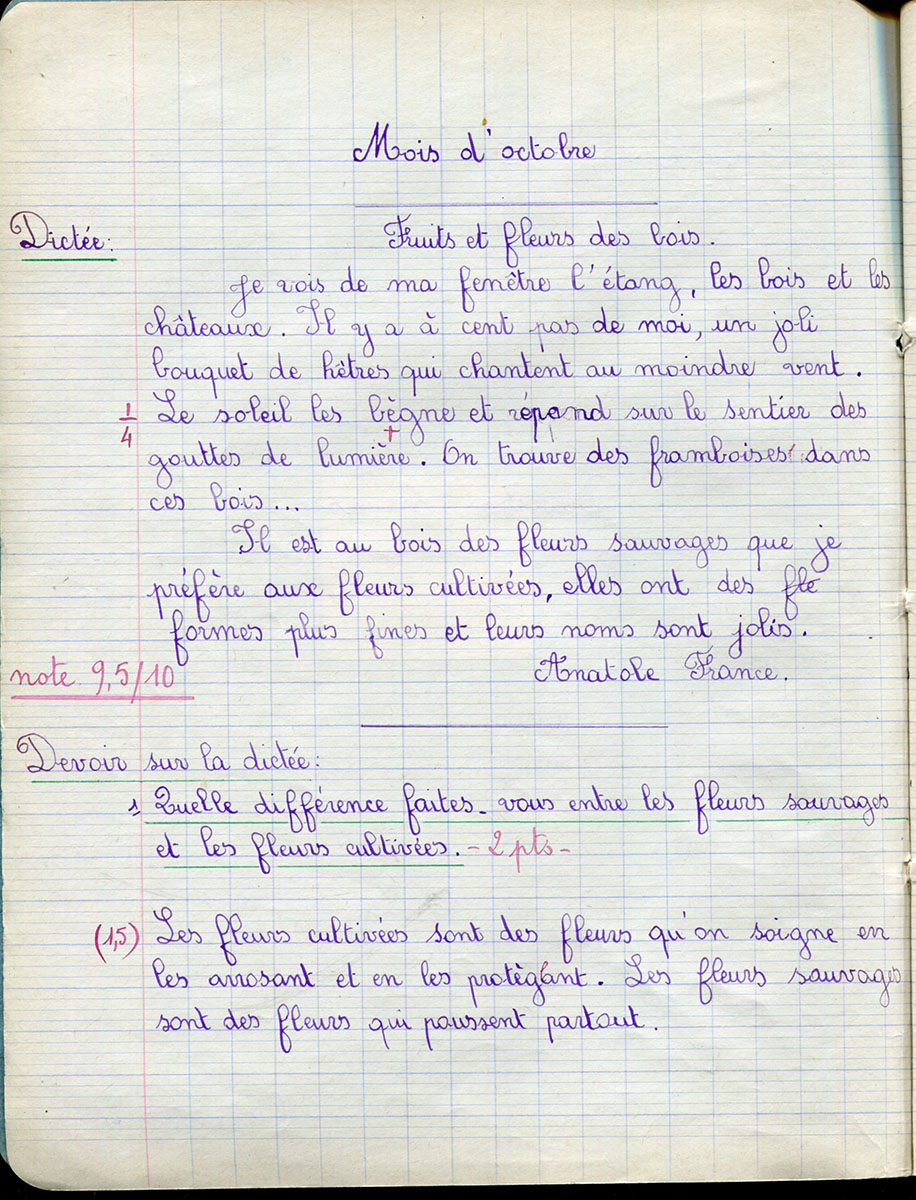 Mois d'octobre
Dictée: Fruits et fleurs des bois.
Je vois de ma fenêtre l'étang, les bois et les
châteaux. Il y a à cent pas de moi, un joli
bouquet de hêtres qui chantent au moindre vent.
1/4 Le soleil les bègne et répand sur le sentier des
gouttes de lumière. On trouve des framboises dans
ces bois...
Il est au bois des fleurs sauvages que je
préfère aux fleurs cultivées, elles ont des fle
formes plus fines et leurs noms sont jolis.
note 9,5/10 Anatole France.
Devoir sur la dictée:
1 Quelle différence faites-vous entre les fleurs sauvages
et les fleurs cultivées. - 2 pts -
(1,5) Les fleurs cultivées sont des fleurs qu'on soigne en
les arrosant et en les protègeant. Les fleurs sauvages
sont des fleurs qui poussent partout.